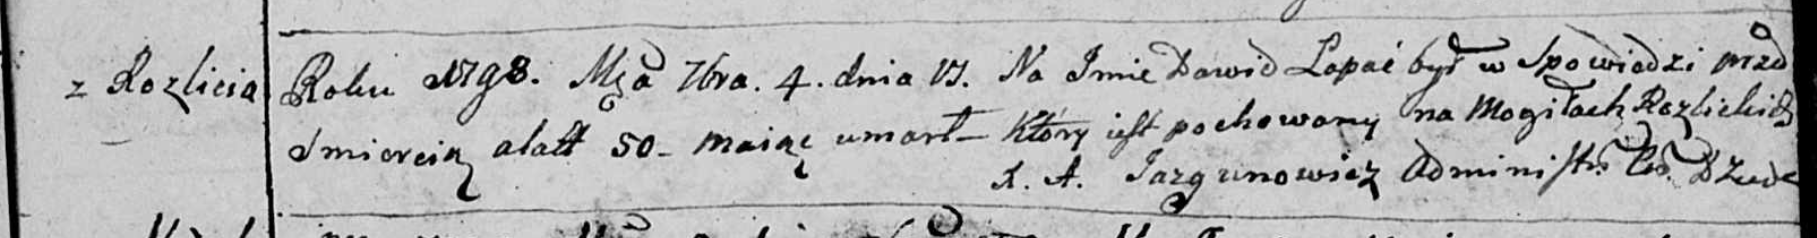 z Rozlicia
Roku 1798. Mca 7bra. 4. dnia V. S. Na Jmie Dawid Łapać był w Spowiedzi przed
Smiercią a latt 50 - maiąc umarł - ktory iest pochowany na Mogiłach Rozlickich
X. A. Jazgunowicz Administr.